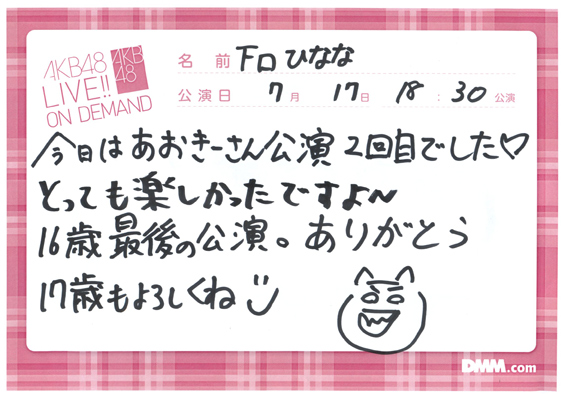 AKB48
LIVE!!
ON DEMAND
AKB
48
名前 下口ひなな
公演日 7月 17日 18:30公演
今日はあおきーさん公演2回目でした♡
とっても楽しかったですよ〜
16歳最後の公演。ありがとう
17歳もよろしくね
DMM.com